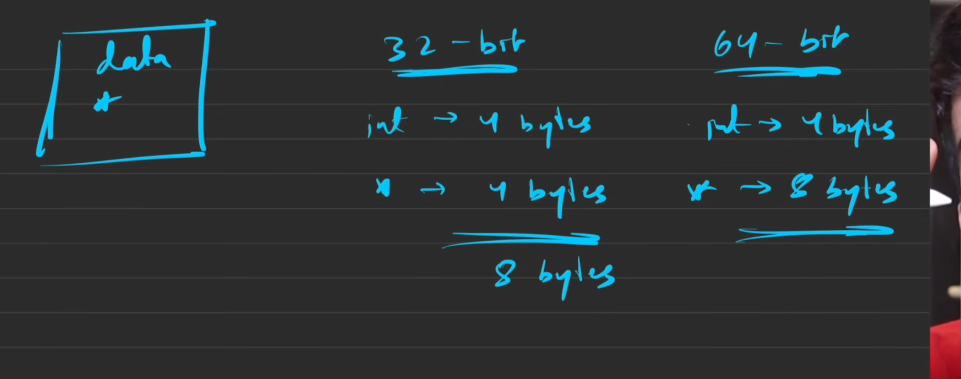 data
*
32-bit
int → 4 bytes
* → 4 bytes
8 bytes
64-bit
int → 4 bytes
* → 8 bytes